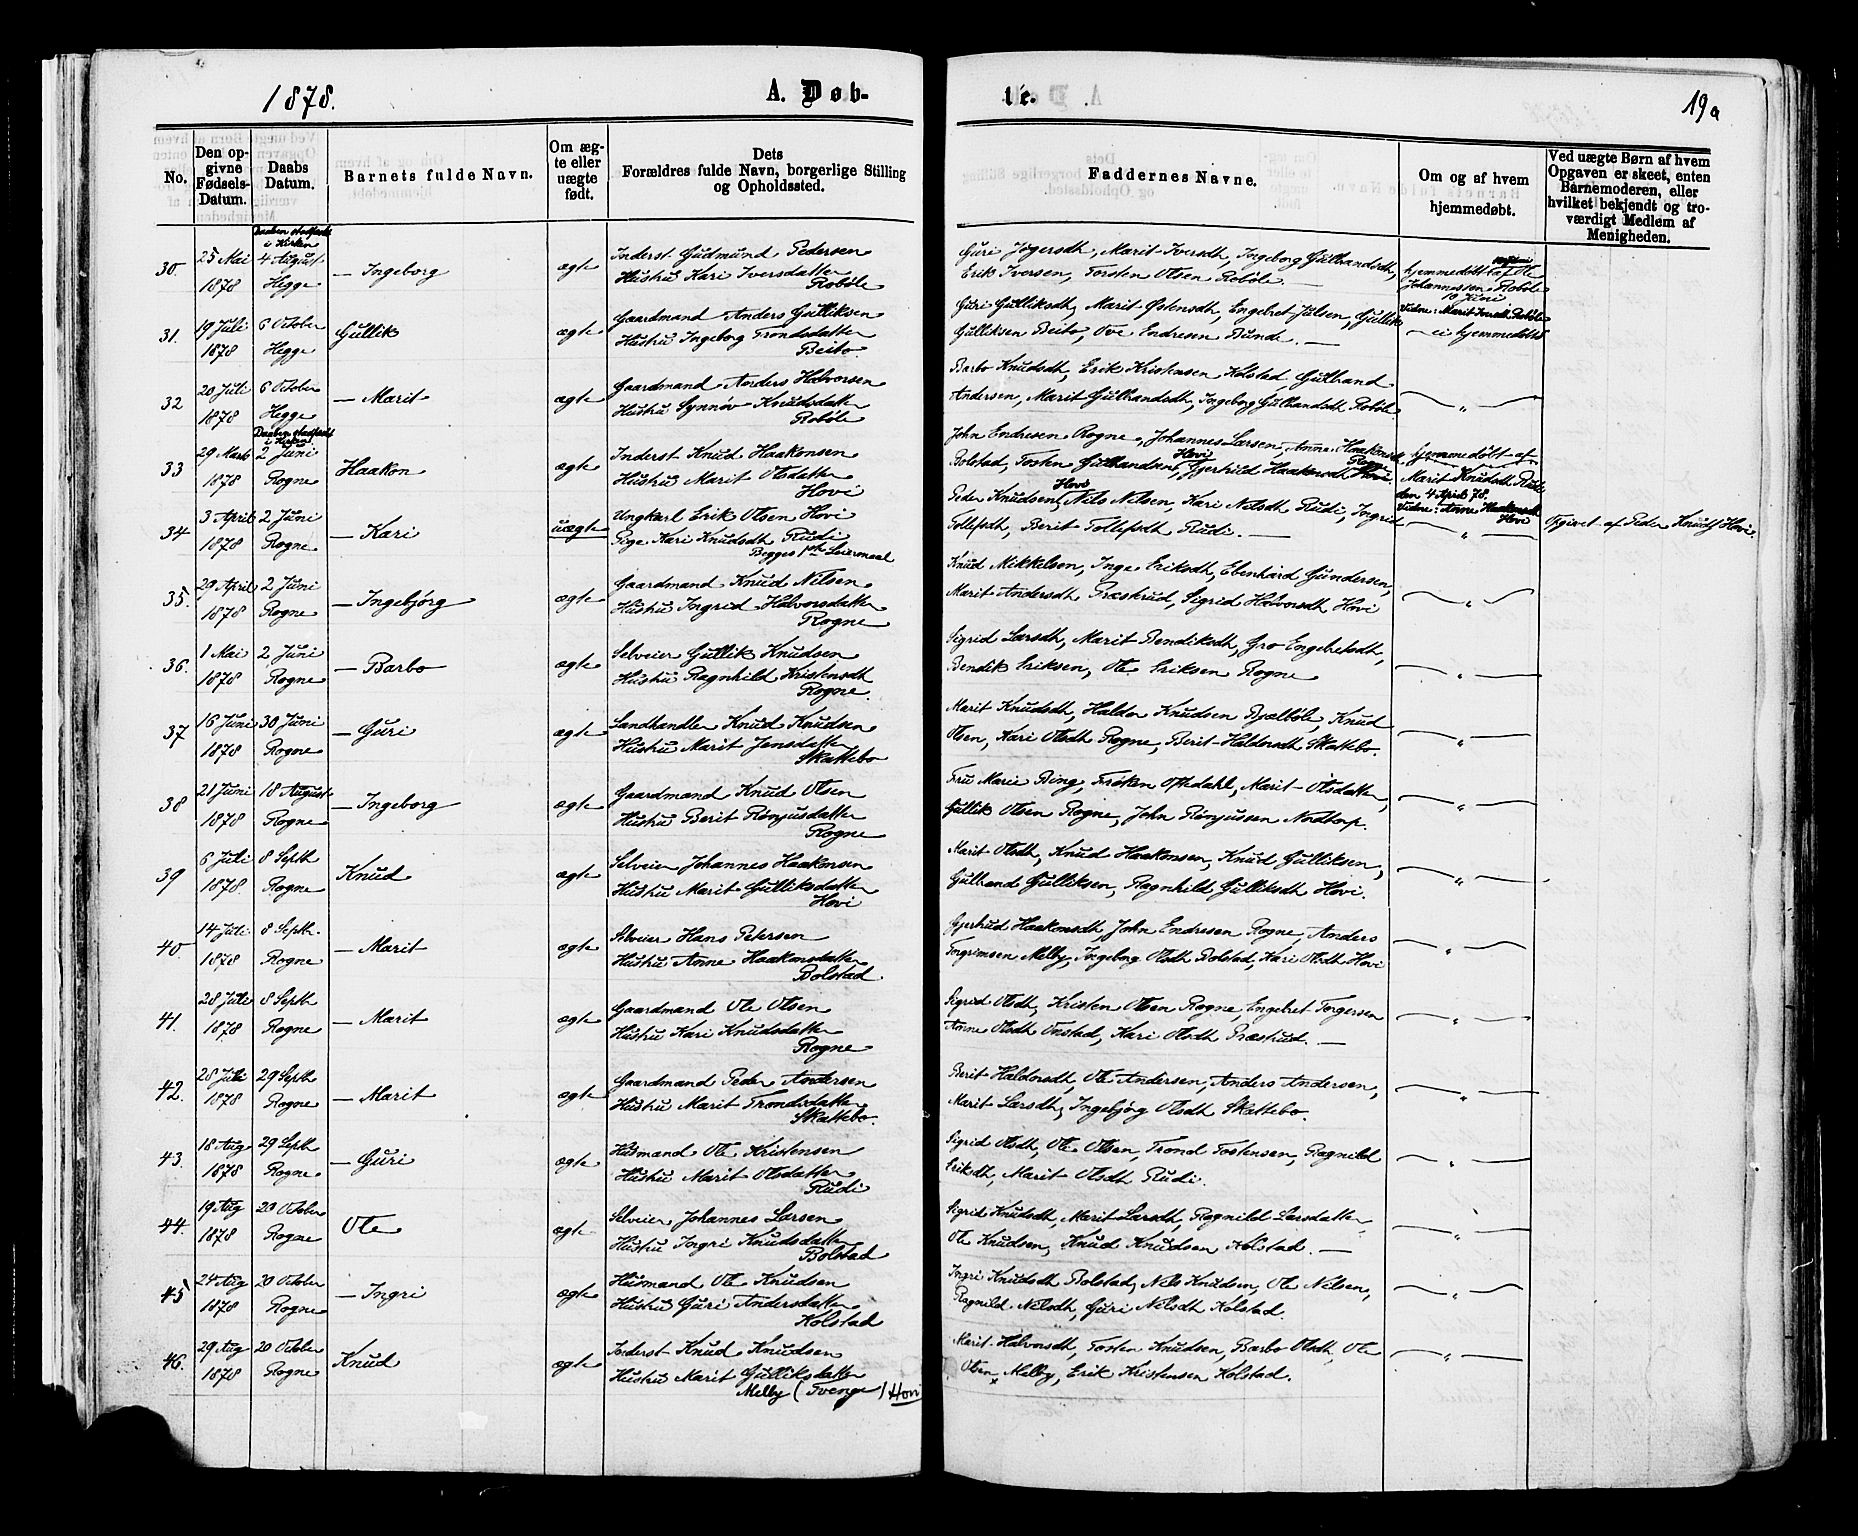 1878.
A. Døb-
te.
19a
No.
Den opgivne Fødsels-Datum.
Daabs Datum.
Barnets fulde Navn.
Om ægte eller uægte født.
Dets Forældres fulde Navn, borgerlige Stilling og Opholdssted.
Faddernes Navne.
Om og af hvem hjemmedøbt.
Ved uægte Børn af hvem Opgaven er skeet, enten Barnemoderen, eller hvilket bekjendt og troværdigt Medlem af Menigheden.
Daaben stadfæstet i Kirken
30. 25 Mai 1878 4 August Hegge — Ingeborg ægte Inderst Gudmund Pedersen
Hustru Kari Iversdatter
Robøle
Marit Iversdth, Ingeborg Gulbrandsdth,
Erik Iversen, Torsten Olsen Robøle. —
hjemmedøbt af Ole
Johannessen Robøle
10 Juni
31. 19 Juli 1878 6 October Hegge Gullik ægte Gaardmand Anders Gulliksen
Hustru Ingeborg Trondsdatter
Beito.
Guri Gulliksdth, Marit Østensdth, Engebret Gullik
Gulliksen Beito, Ove Endresen Bunde. —
— ei hjemmedøbt
32 20 Juli 1878 6 October Hegge — Marit ægte Gaardmand Anders Halvorsen
Hustru Synnøv Knudsdatter
Robøle
Barbo Knudsdth, Erik Kristensen Kolstad, Gulbrand
Andersen, Marit Gulbrandsdth, Ingeborg Gulbrandsdth Robøle
— „ —
Daaben stadfæstet i Kirken.
33 29 Marts 1878 2 Juni Rogne Haakon ægte Inderst Knud Haakonsen
Hustru Marit Olsdatter
Hovi
John Endresen Rogne, Johannes Larsen, Anne Haakonsdth
Bolstad, Tosten Gulbrandsen Hovi, Gjertrud Haakonsdth Hovi.
hjemmedøbt af
Marit Knudsdth Rudi
den 4 April 78.
Vidne: Anne Haakonsdth
Hovi
34 3 April 1878 2 Juni Rogne — Kari uægte Ungkarl Erik Olsen Hovi
Pige Kari Knudsdth Rudi
Begges 1ste Leiermaal
Peder Knudsen Hovi, Nils Nilsen, Kari Nilsdth Rudi, Ingrid
Tollefsdth, Berit Tollefsdth Rudi. —
— „ —
Opgivet af Peder Knuds Hovi.
35. 29 April 1878 2 Juni Rogne — Ingebjørg ægte Gaardmand Knud Nilsen
Hustru Ingrid Halvorsdatter
Rogne
Knud Mikkelsen, Inge Eriksdth, Ebenhard Gundersen,
Marit Andersdth Præstrud, Sigrid Halvorsdth Hovi
— „ —
36. 1 Mai 1878 2 Juni Rogne — Barbo ægte Selveier Gullik Knudsen
Hustru Ragnhild Kristensdth
Rogne.
Sigrid Larsdth, Marit Bendiksdth, Gro Engebretsdth,
Bendik Eriksen, Ole Eriksen Rogne
— „ —
37 16 Juni 1878 30 Juni Rogne — Guri ægte Landhandler Knud Knudsen
Hustru Marit Jensdatter
Skattebo
Marit Knudsdth, Haldor Knudsen Bjælbøle, Knud
Olsen, Kari Olsdth Rogne, Berit Haldorsdth Skattebo.
— „ —
38 21 Juni 1878 18 August Rogne — Ingeborg ægte Gaardmand Knud Olsen
Hustru Berit Rønjusdatter
Rogne
Fru Marie Bing, Frøken Oftedahl, Marit Olsdatter,
Gullik Olsen Rogne, John Rønjussen Nordtorp.
— „ —
39 6 Juli 1878. 8 Septb Rogne Knud ægte Selveier Johannes Haakonsen
Hustru Marit Gulliksdatter
Hovi
Marit Olsdth, Knud Haakonsen, Knud Gulliksen,
Gulbrand Gulliksen, Ragnhild Gulliksdth Hovi.
— „ —
40. 14 Juli 1878 8 Septb. Rogne — Marit ægte Selveier Hans Petersen
Hustru Anne Haakonsdatter
Bolstad.
Gjertrud Haakonsdth, John Endresen Rogne, Anders
Torgrimsen Melby, Ingeborg Olsdth Bolstad, Kari Olsdth Hovi
— „ —
41. 28 Juli 1878. 8 Septb Rogne — Marit ægte Gaardmand Ole Olsen
Hustru Kari Knudsdatter
Rogne
Sigrid Olsdth, Kristen Olsen Rogne, Engebret Torgersen
Anne Olsdth Onstad, Kari Olsdth Præstrud. —
— „ —
42. 28 Juli 1878 29 Septb Rogne — Marit ægte Gaardmand Peder Andersen
Hustru Marit Trondsdatter
Skattebo.
Berit Haldorsdth, Ole Andersen, Anders Andersen,
Marit Larsdth, Ingebjørg Olsdth Skattebo.
— „ —
43. 18 Aug 1878 29 Septb Rogne — Guri ægte Husmand Ole Kristensen
Hustru Marit Olsdatter
Rudi
Sigrid Olsdth, Ole Olsen, Trond Tostensen, Ragnild
Eriksdth, Marit Olsdth Rudi.
— „ —
44. 19 Aug 1878 20 October Rogne Ole ægte Selveier Johannes Larsen
Hustru Ingri Knudsdatter
Bolstad
Sigrid Knudsdth, Marit Larsdth, Ragnild Larsdatter,
Ole Knudsen, Knud Knudsen Kolstad. —
— „ —
45 24 Aug 1878 20 October Rogne — Ingri ægte Husmand Ole Knudsen
Hustru Guri Andersdatter
Kolstad
Ingri Knudsdth Bolstad, Nils Knudsen, Ole Nilsen,
Ragnild Nilsdth, Guri Nilsdth Kolstad.
— „ —
46. 29 Aug 1878 20 October Rogne Knud ægte Inderst Knud Knudsen
Hustru Marit Gulliksdatter
Melby (Tvenge) Hovi
Marit Halvorsdth, Tosten Knudsen, Barbo Olsdth, Ole
Olsen Melby, Erik Kristensen Kolstad.
— „ —